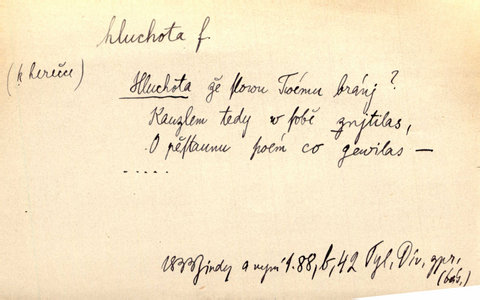 hluchota f.
(k herečce)
Hluchota že slowu Twému bránj?
Kauzlem tedy w sobě znjtilas,
O pěstaunu poém co gewilas —
.....
1833 Jindy a nynj 1.88, b, 42 Tyl, Div. zpr.
(bás.)